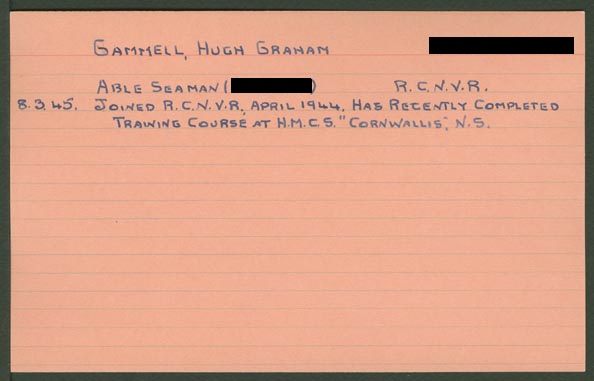 GAMMELL, HUGH GRAHAM
ABLE SEAMAN ( ) R.C.N.V.R.
8.3.45. JOINED R.C.N.V.R, APRIL 1944, HAS RECENTLY COMPLETED
TRAINING COURSE AT H.M.C.S. "CORNWALLIS", N.S.